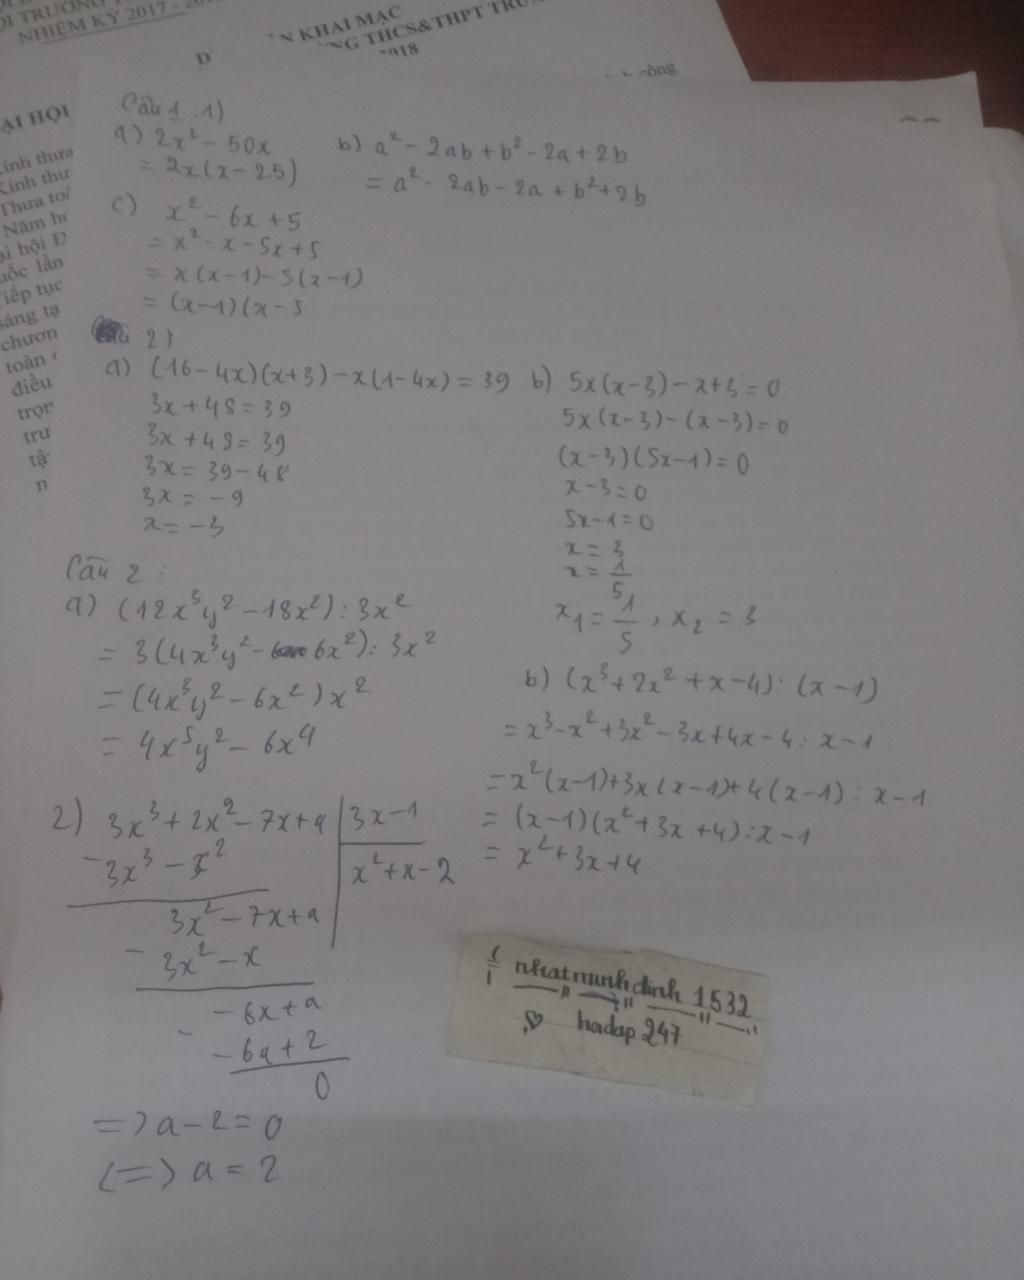 NHIỆM KỲ 2017 - 20
N KHAI MẠC
NG THCS&THPT TRU
2018
ẠI HỘI
Kính thưa
Kính thư
Thưa to
Năm h
ại hội Đ
uốc lần
Tiếp tục
sáng tạ
chươn
toàn
điều
trọn
trư
tậ
n
Câu 1 .1)
a) 2x² - 50x
= 2x(x-25)
b) a² - 2ab + b² - 2a + 2b
= a² - 2ab - 2a + b² + 2b
c) x² - 6x + 5
= x² - x - 5x + 5
= x(x-1) - 5(x-1)
= (x-1)(x-5
2)
a) (16-4x)(x+3) - x(1-4x) = 39
3x + 48 = 39
3x + 48 = 39
3x = 39 - 48
3x = -9
x = -3
b) 5x(x-3) - x+3 = 0
5x(x-3) - (x-3) = 0
(x-3)(5x-1) = 0
x-3 = 0
5x-1 = 0
x = 3
x = 1/5
x₁ = 1/5, x₂ = 3
Câu 2 :
a) (12x³y² - 18x²) : 3x²
= 3(4x³y² - 6x²) : 3x²
= (4x³y² - 6x²) x²
= 4x⁵y² - 6x⁴
b) (x³ + 2x² + x - 4) : (x - 1)
= x³ - x² + 3x² - 3x + 4x - 4 : x - 1
= x²(x-1) + 3x(x-1) + 4(x-1) : x - 1
= (x-1)(x² + 3x + 4) : x - 1
= x² + 3x + 4
2) 3x³ + 2x² - 7x + a | 3x - 1
- 3x³ - x² | x² + x - 2
3x² - 7x + a
- 3x² - x
- 6x + a
- - 6a + 2
0
=> a - 2 = 0
(=> a = 2
nhatminhdinh 1532
hadap 247